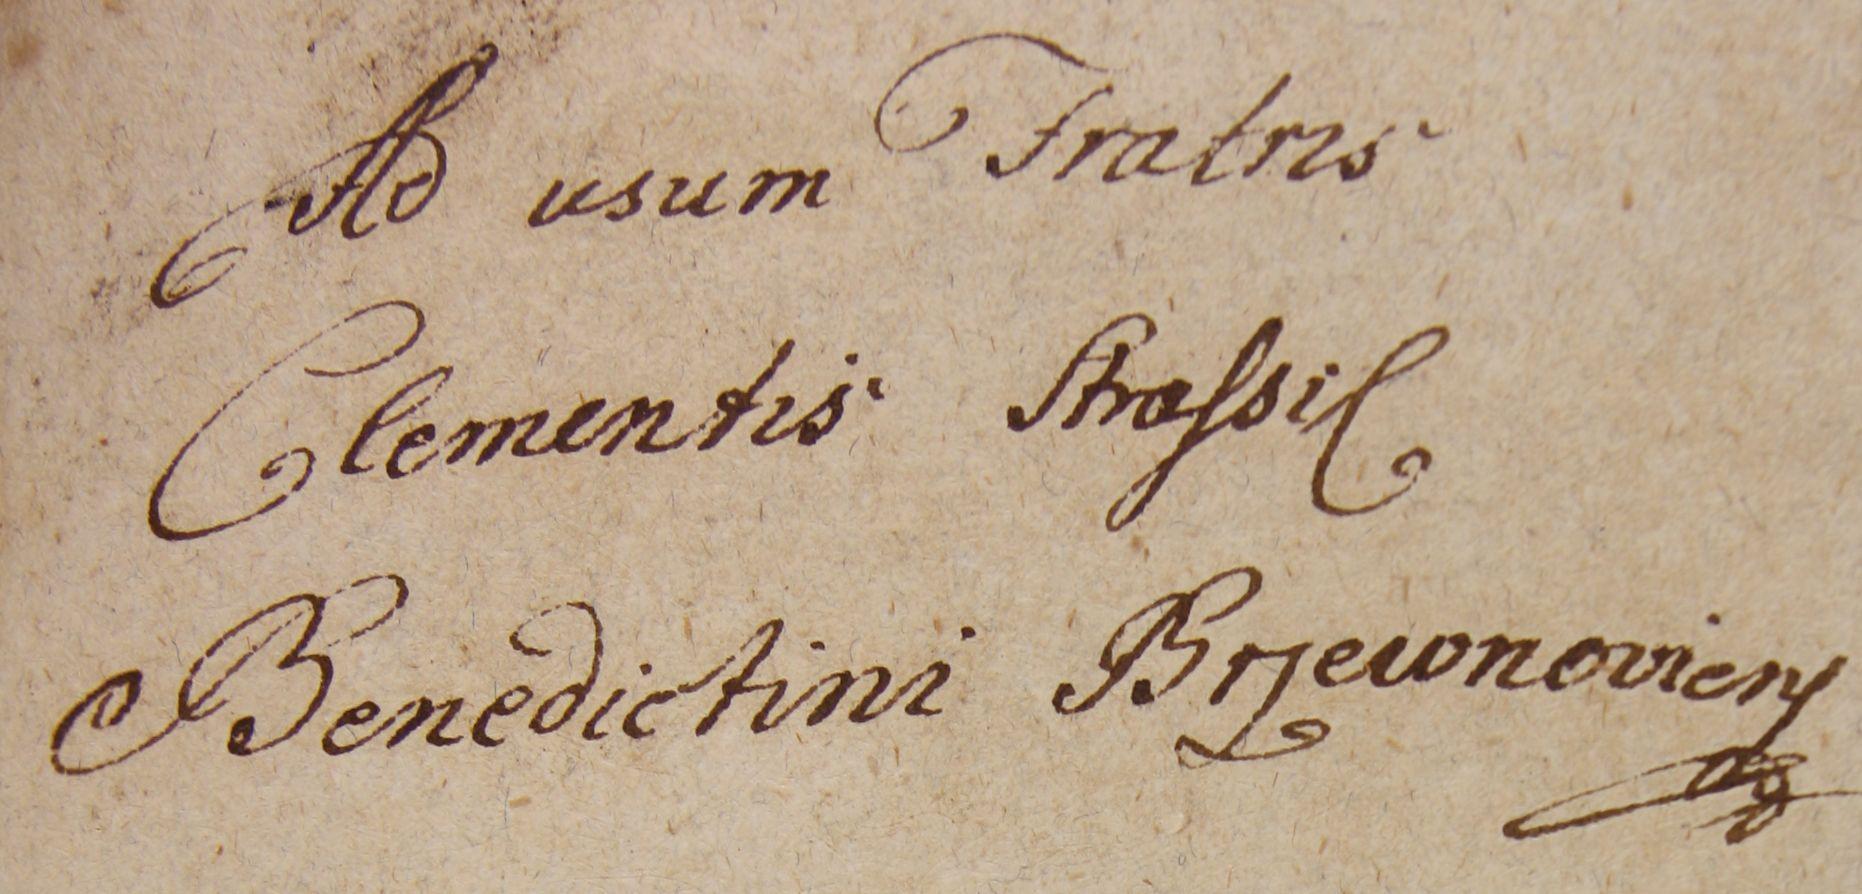 Ad usum Fratris
Clementis Straſsil
Benedictini Brzewnovien̄